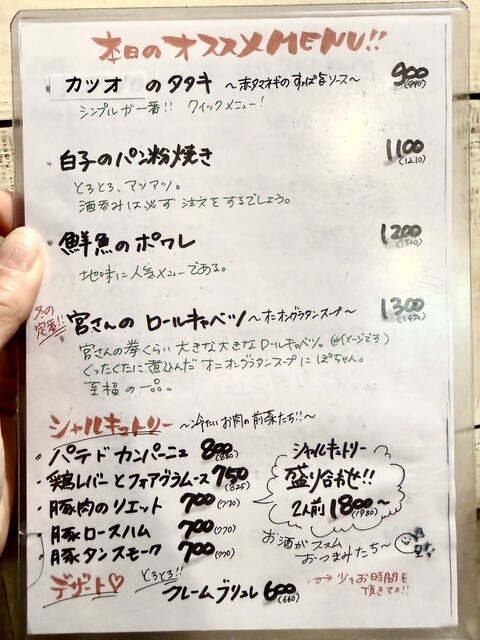 本日のオススメMENU!!
カツオ のタタキ 〜赤タマネギのすっぱなソース〜 900(990)
シンプルが一番!! クイックメニュー!
・白子のパン粉焼き 1100(1210)
とろとろ、アツアツ。
酒呑みは必ず注文をするでしょう。
・鮮魚のポワレ 1200(1320)
地味に人気メニューである。
冬の定番!!
・宮さんの ロールキャベツ〜オニオングラタンスープ〜 1300(1430)
宮さんの拳くらい大きな大きなロールキャベツ。(※イメージです)
くったくたに煮込んだオニオングラタンスープにぽちゃん。
至福の一品。
シャルキュトリー 〜冷たいお肉の前菜たち!!〜
・パテドカンパーニュ 800(880)
・鶏レバーとフォアグラムース 750(825)
・豚肉のリエット 700(770)
・豚ロースハム 700(770)
・豚タンスモーク 700(770)
シャルキュトリー
盛り合わせ!!
2人前 1800〜(1980)
お酒がススム
おつまみたち〜
デザート♡ とろとろ!! クレームブリュレ 600(660)
→少々お時間を
頂きます!!